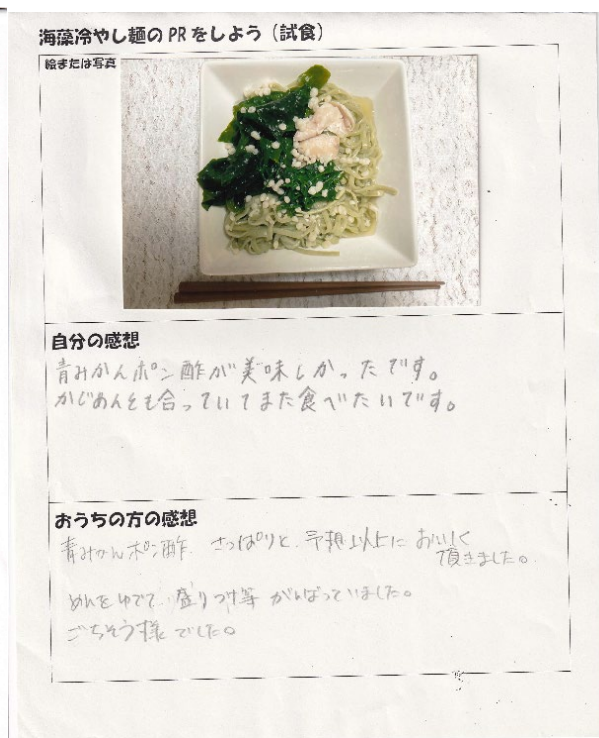 海藻冷やし麺のPRをしよう（試食）
絵または写真
自分の感想
青みかんポン酢が美味しかったです。
かじめんとも合っていてまた食べたいです。
おうちの方の感想
青みかんポン酢、さっぱりと、予想以上に おいしく
頂きました。
めんをゆでて、盛りつけ等 がんばっていました。
ごちそう様でした。